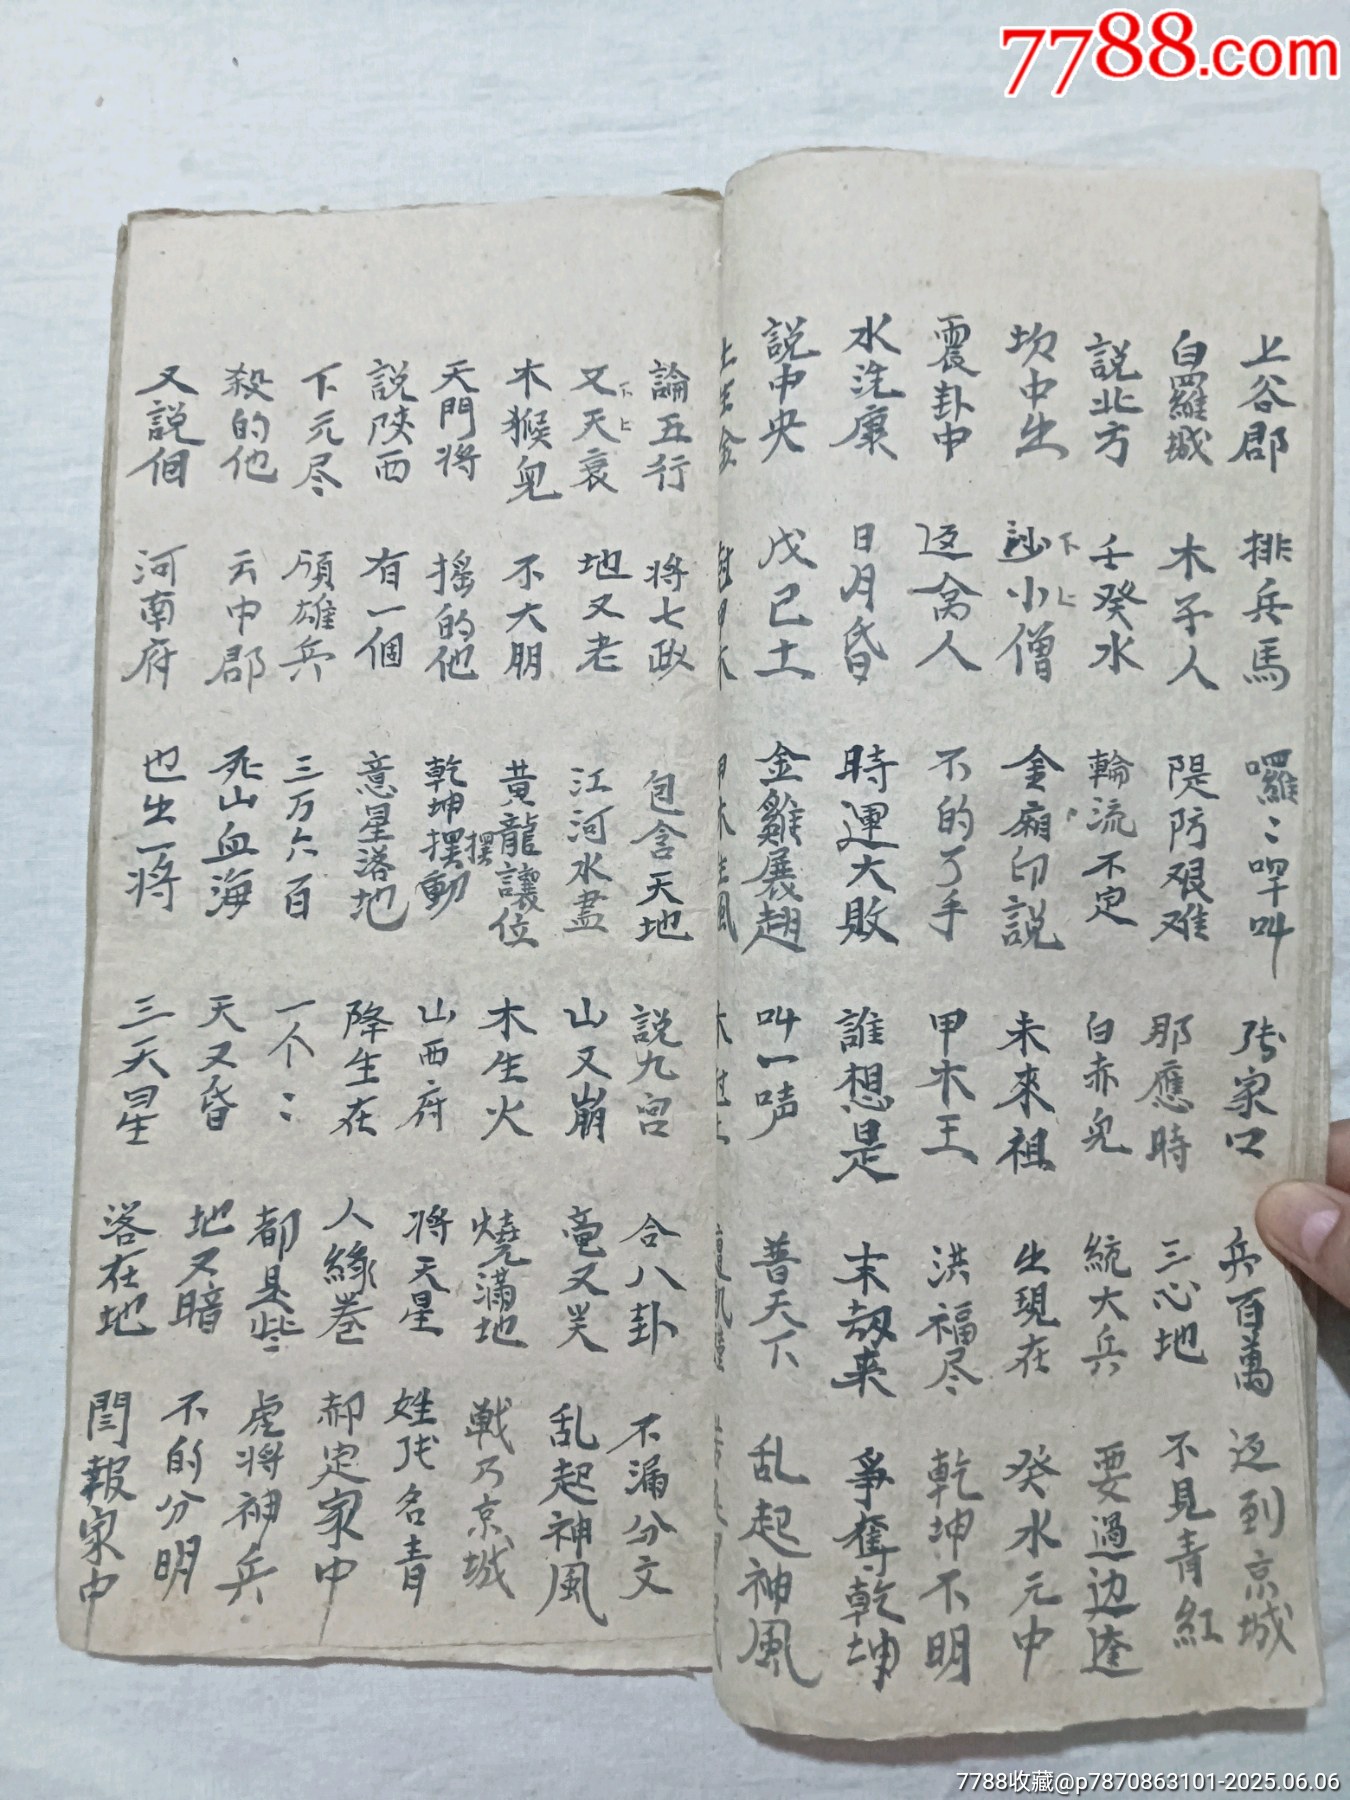 7788.com
上谷郡 排兵馬 囉〻啈叫 張家口 兵百萬 返到京城
白羅城 木子人 隄防艰难 那應時 三心地 不見青紅
説北方 壬癸水 輪流不定 白赤兒 統大兵 要過边逵
坎中生 小僧 金廟印説 未來祖 出現在 癸水元中
震卦中 返禽人 不的了手 甲木王 洪福尽 乾坤不明
水洗康 日月昏 時運大敗 誰想是 末刼来 爭奪乾坤
説中央 戊己土 金雞展翅 叫一唪 普天下 乱起神風
論五行 将七政 包含天地 説九宫 合八卦 不漏分文
又天衰 地又老 江河水盡 山又崩 竜又哭 乱起神風
木猴兒 不大朋 黄龍讓位 木生火 燒滿地 戰乃京城
天門将 摇的他 乾坤摆動 山西府 将天星 姓張名青
摆
説陝西 有一個 意星落地 降生在 人緣卷 郝定家中
下元尽 領雄兵 三万六百 一个〻 都是些 虎将神兵
殺的他 云中郡 死山血海 天又昏 地又暗 不的分明
又説個 河南府 也出一将 三天星 落在地 閆報家中
7788收藏@p7870863101-2025.06.06